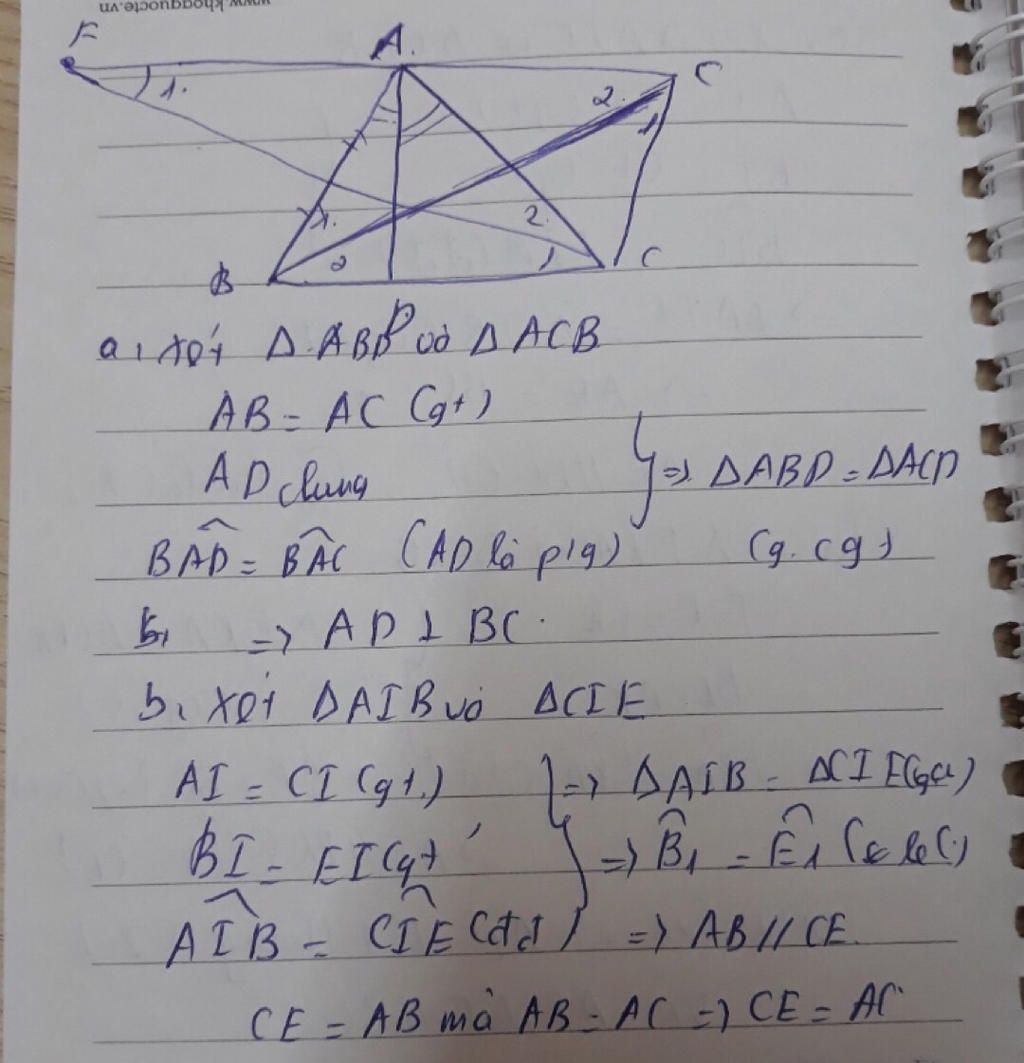 www.khoquocte.vn
F A. C
1. 2. 1
1. 2.
B 2 1 C
D
a, xét Δ ABD và Δ ACB
AB = AC (gt)
AD chung => ΔABD = ΔACD
BAD = BAC (AD là p/g) (g.cg)
b, => AD ⊥ BC.
b, xét ΔAIB và ΔCIE
AI = CI (gt) => ΔAIB = ΔCIE (gcc)
BI = EI (gt => B1 = E1 (sc le ()
AIB = CIE (dd) => AB // CE.
CE = AB mà AB = AC => CE = AC